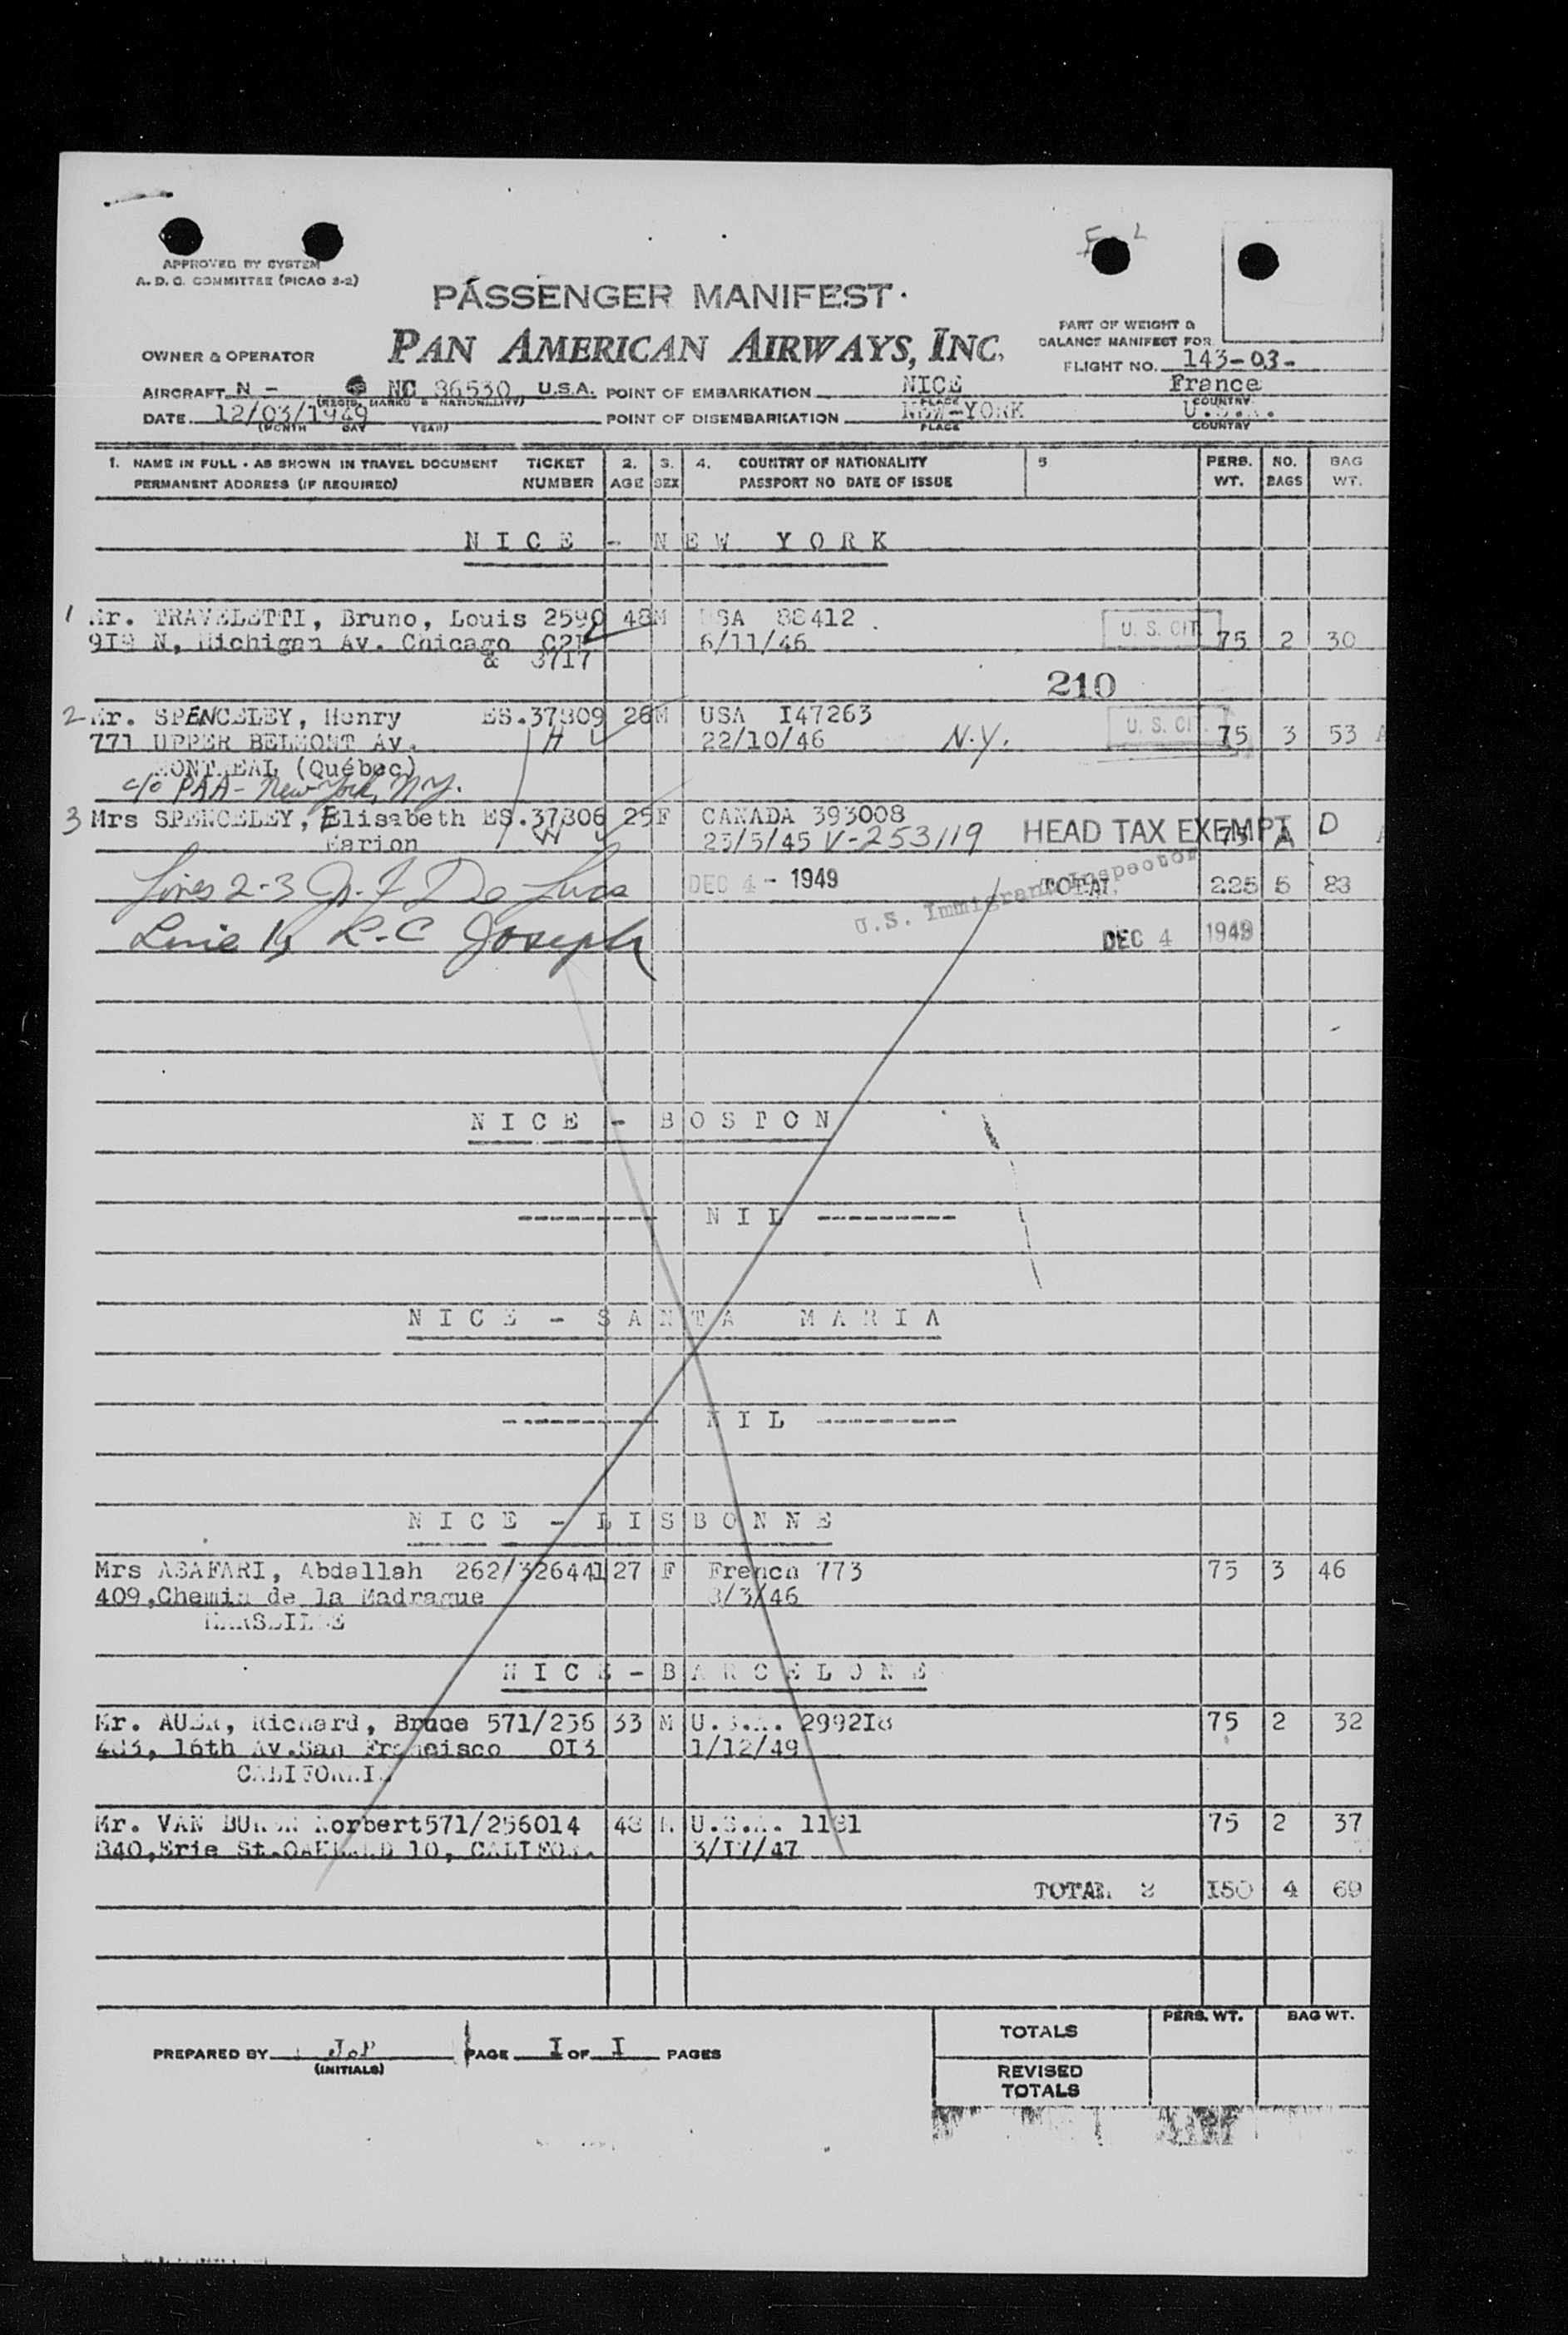 APPROVED BY SYSTEM
A. D. C. COMMITTEE (PICAO 3-2)
PASSENGER MANIFEST
PAN AMERICAN AIRWAYS, INC.
PART OF WEIGHT &
BALANCE MANIFEST FOR
OWNER & OPERATOR
FLIGHT NO. 143-03-
AIRCRAFT N - NC 86530 U.S.A. POINT OF EMBARKATION NICE France
(REGIS. MARKS & NATIONALITY) PLACE COUNTRY
DATE 12/03/1949 POINT OF DISEMBARKATION NEW-YORK U.S.A.
(MONTH DAY YEAR) PLACE COUNTRY
1. NAME IN FULL - AS SHOWN IN TRAVEL DOCUMENT TICKET 2. 3. 4. COUNTRY OF NATIONALITY 5 PERS. NO. BAG
PERMANENT ADDRESS (IF REQUIRED) NUMBER AGE SEX PASSPORT NO DATE OF ISSUE WT. BAGS WT.
NICE - NEW YORK
1 Mr. TRAVELETTI, Bruno, Louis 2590 48 M USA 88412
N, Michigan Av. Chicago 6/11/46 U. S. CIT. 75 2 30
& 3717
210
2 Mr. SPENCELEY, Henry ES.37809 26 M USA I47263
771 UPPER BELMONT Av. H 22/10/46 N.Y. U. S. CIT. 75 3 53
MONTREAL (Québec)
c/o PAA - New York, N.Y.
3 Mrs SPENCELEY, Elisabeth ES.37808 25 F CANADA 393008
Marion 23/5/45 V-253119 HEAD TAX EXEMPT 75 A D
Lines 2-3 De Luca DEC 4 - 1949 TOTAL 225 5 83
U.S. Immigrant Inspector
Line 1, R-C Joseph DEC 4 1949
NICE - BOSTON
---------- NIL ----------
NICE - SANTA MARIA
---------- NIL ----------
NICE - LISBONNE
Mrs ASAFARI, Abdallah 262/326441 27 F French 773 75 3 46
409,Chemin de la Madrague 8/3/46
MARSEILLE
NICE - BARCELONE
Mr. AUER, Richard, Bruce 571/256 33 M U.S.A. 299218 75 2 32
16th Av.San Francisco OI3 1/12/49
CALIFORNIA
Mr. VAN BUREN Norbert571/256014 48 M U.S.A. 1181 75 2 37
840,Erie St.OAKLAND 10, CALIFOR. 3/I7/47
TOTAL 2 I50 4 69
TOTALS PERS. WT. BAG WT.
PREPARED BY PAGE I OF I PAGES
(INITIALS)
REVISED
TOTALS